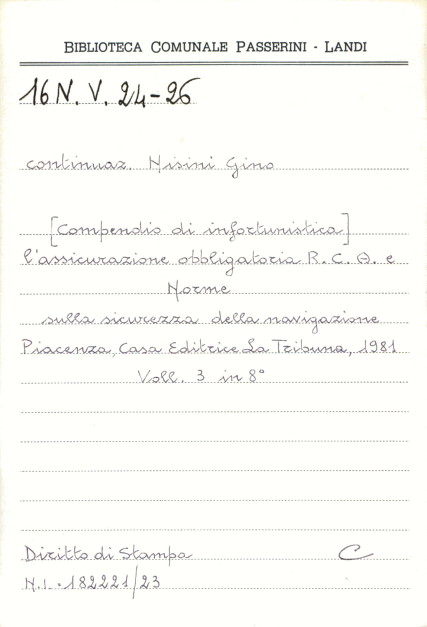 BIBLIOTECA COMUNALE PASSERINI - LANDI
16 N. V. 24-26
continuaz. Nisini Gino
[Compendio di infortunistica]
l'assicurazione obbligatoria R. C. A. e
Norme
sulla sicurezza della navigazione
Piacenza, Casa Editrice La Tribuna, 1981
Voll. 3 in 8°
Diritto di Stampa C
N.I. 182221/23